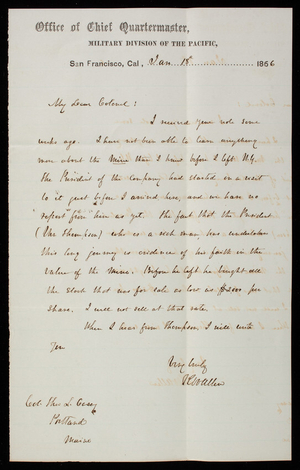 Office of Chief Quartermaster,
MILITARY DIVISION OF THE PACIFIC,
San Francisco, Cal., Jan 18 1866
My Dear Colonel:
I received your note some
weeks ago. I have not been able to learn anything
more about the Mine than I knew before I left N.Y.
the President of the Company had started on a visit
to it just before I arrived here, and we have no
report from him as yet. The fact that the President
(Mr Thompson) who is a rich man, has undertaken
this long journey is evidence of his faith in the
value of the Mine. Before he left he bought all
the stock that was for sale as low as $2000 per
share. I will not sell at that rate.
When I hear from Thompson I will write
you
Very truly
R Allen
Col. Thos L. Casey
Portland
Maine